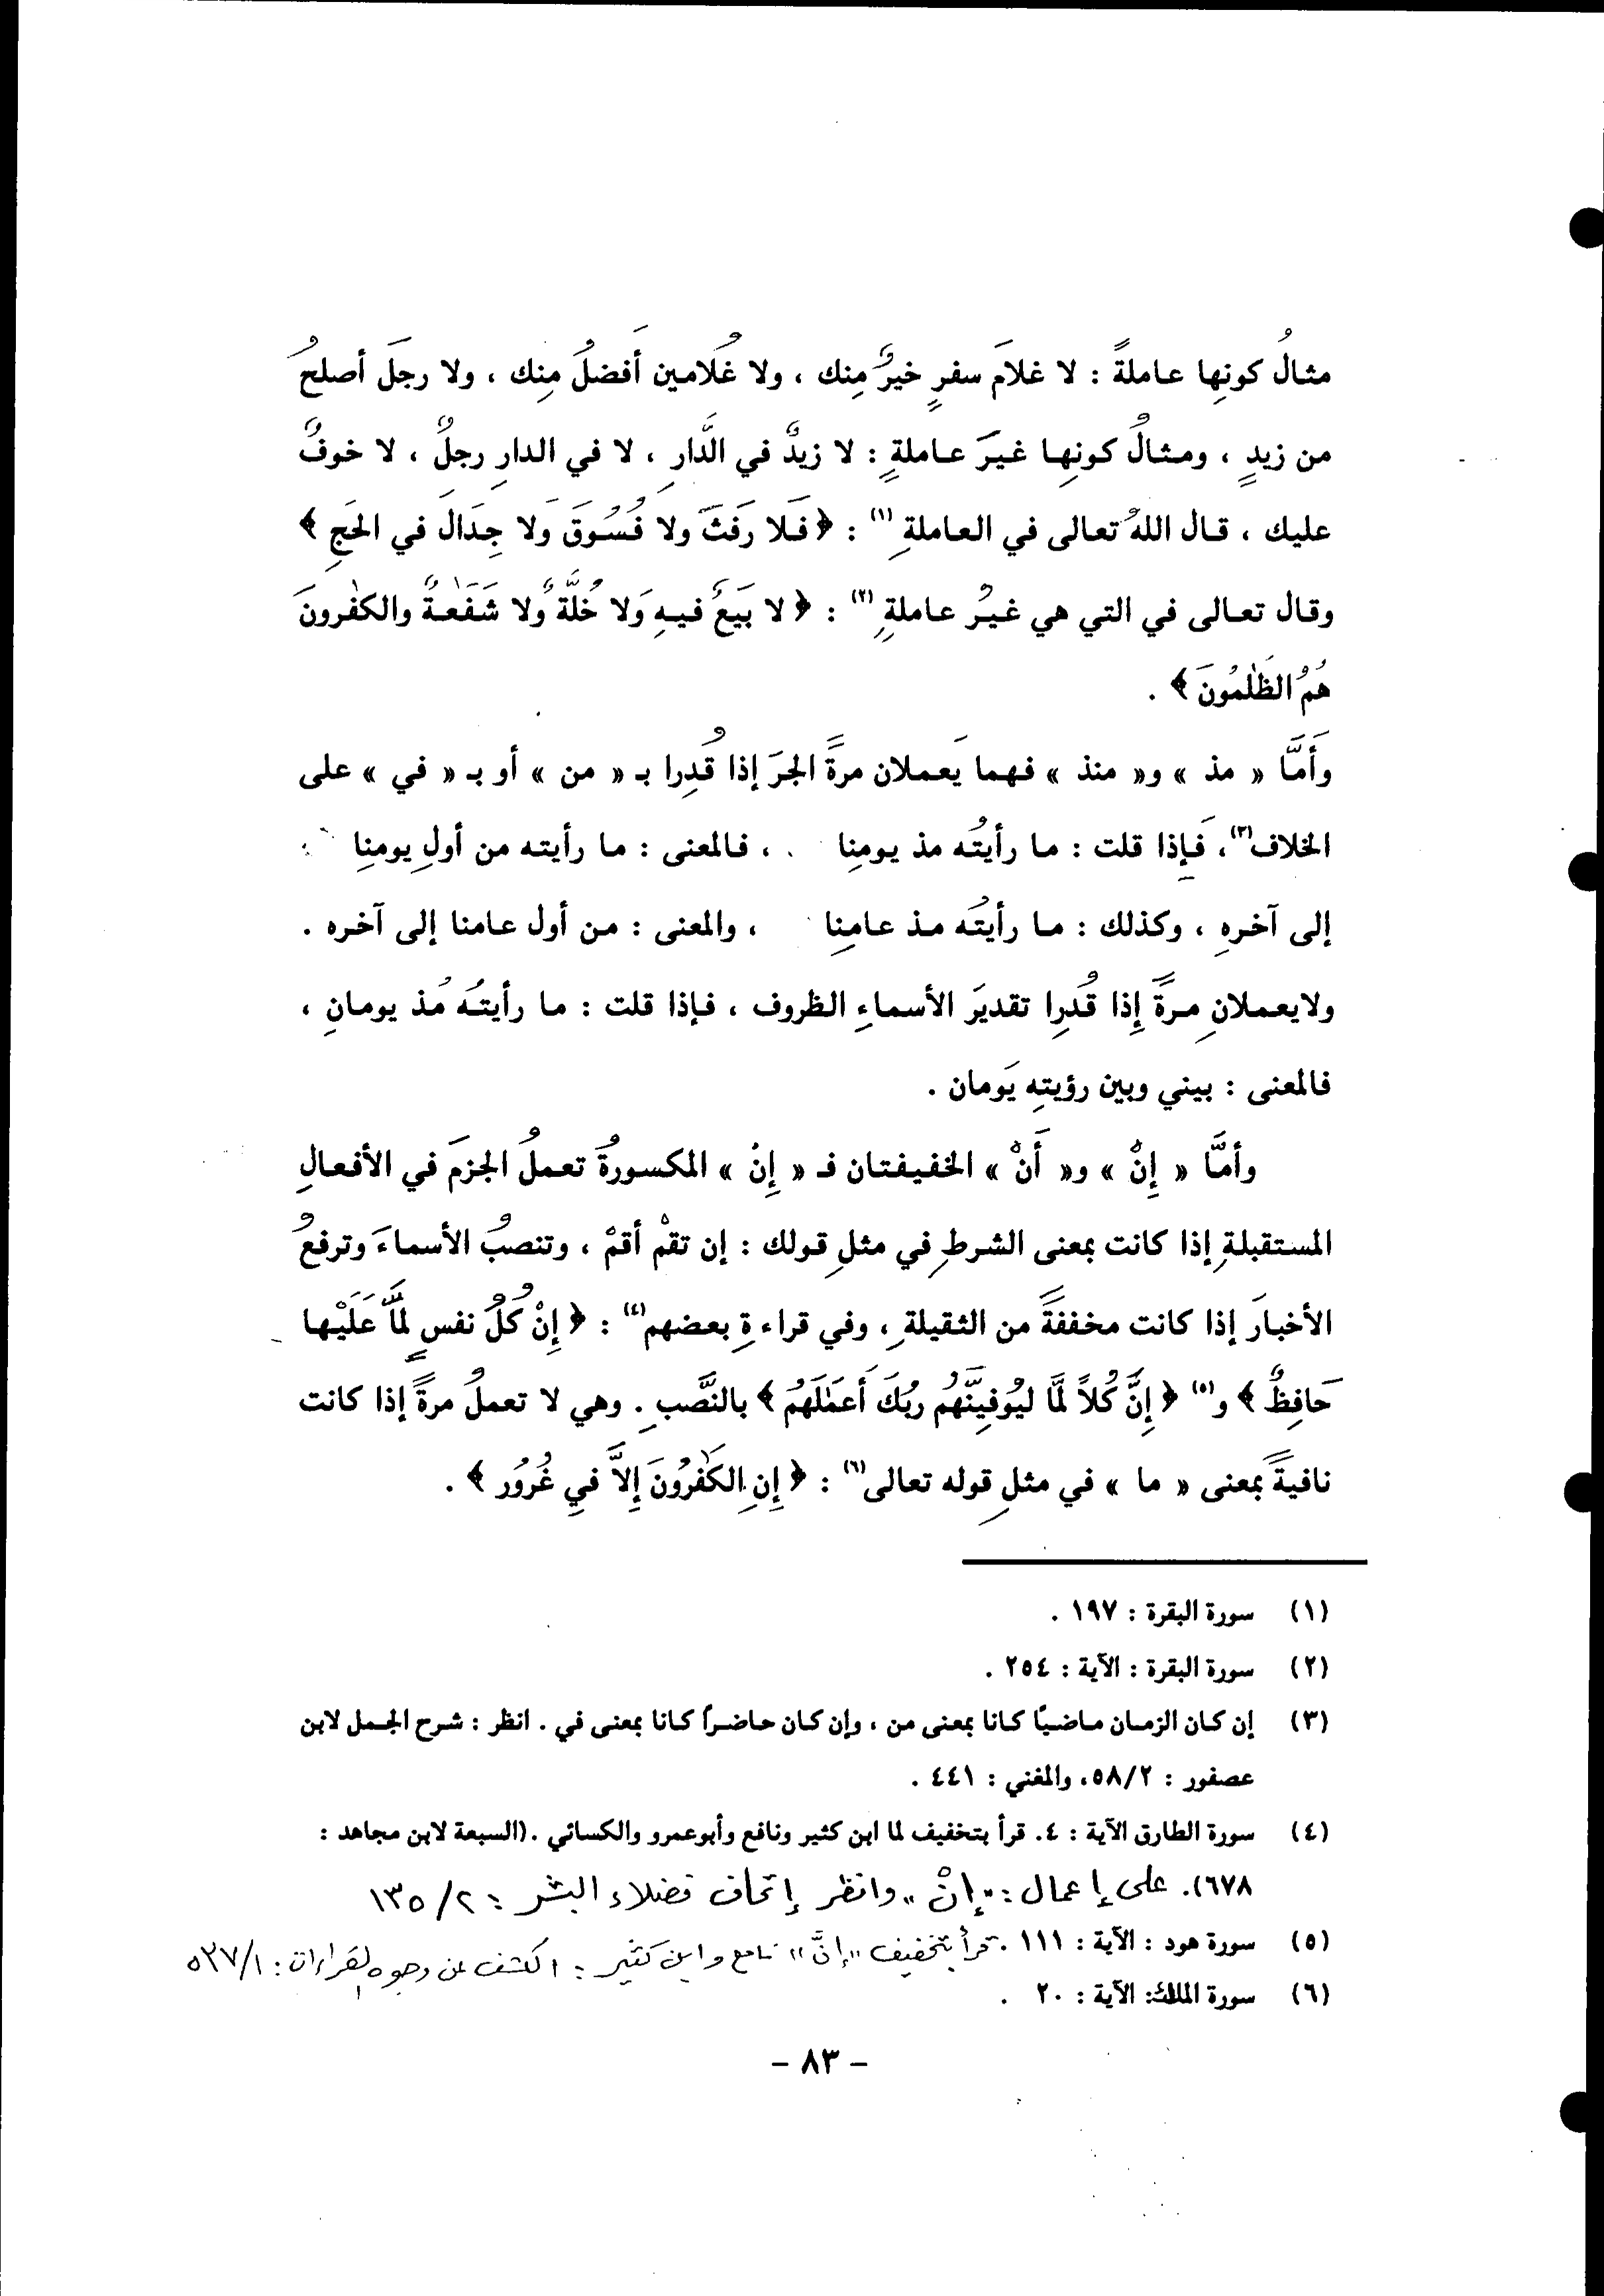 مثالُ كونِها عاملةً : لا غلامَ سفرٍ خيرٌ مِنك ، ولا غُلامين أَفضلُ مِنك ، ولا رجلَ أصلحُ
من زيدٍ ، ومثالُ كونِها غيرَ عاملةٍ : لا زيدٌ في الدَّارِ ، لا في الدارِ رجلٌ ، لا خوفٌ
عليك ، قال اللهُ تعالى في العاملةِ (١) : ﴿ فَلا رَفَثَ ولا فُسُوقَ وَلا جِدَالَ في الحَجِ ﴾
وقال تعالى في التي هي غيرُ عاملةٍ (٢) : ﴿ لا بَيَعٌ فيهِ وَلا خُلَّةٌ ولا شَفَٰعةٌ والكفٰرونَ
هُمُ الظَٰلمُونَ ﴾ .
وَأَمَّا « مذ » و« منذ » فهما يَعملان مرةً الجرَ إذا قُدِرا بـ « من » أو بـ « في » على
الخلاف(٣)، فَإِذا قلت : ما رأيتُه مذ يومِنا ، فالمعنى : ما رأيته من أولِ يومنِا
إلى آخرهِ ، وكذلك : ما رأيتُه مذ عامِنا ، والمعنى : من أول عامنا إلى آخره .
ولايعملانِ مرةً إِذا قُدرِا تقديرَ الأسماءِ الظروف ، فإذا قلت : ما رأيتُه مُذ يومانِ ،
فالمعنى : بيني وبين رؤيتهِ يَومان .
وأمَّا « إِنْ » و« أَنْ » الخفيفتان فـ « إِنْ » المكسورةُ تعملُ الجزمَ في الأفعالِ
المستقبلةِ إذا كانت بمعنى الشرطِ في مثلِ قولك : إن تقمْ أقمْ ، وتنصبُ الأسماءَ وترفعُ
الأخبارَ إذا كانت مخففةً من الثقيلةِ ، وفي قراءةِ بعضهم(٤) : ﴿ إِنْ كُلُّ نفسٍ لَمَّا عَلَيْها
حَافِظٌ ﴾ و(٥) ﴿ إِنَّ كُلاً لمَّا ليُوفيِنَّهُم ربُكَ أَعمَٰلَهُم ﴾ بالنَّصبِ . وهي لا تعملُ مرةً إذا كانت
نافيةً بمعنى « ما » في مثلِ قوله تعالى(٦) : ﴿ إِنِ الكَٰفرُونَ إِلاَّ في غُرُور ﴾ .
(١) سورة البقرة : ١٩٧ .
(٢) سورة البقرة : الآية : ٢٥٤ .
(٣) إن كان الزمان ماضيًا كانا بمعنى من ، وإن كان حاضرًا كانا بمعنى في . انظر : شرح الجمل لابن
عصفور : ٥٨/٢، والمغني : ٤٤١ .
(٤) سورة الطارق الآية : ٤. قرأ بتخفيف لما ابن كثير ونافع وأبوعمرو والكسائي .(السبعة لابن مجاهد :
٦٧٨). على إعمال : "إنْ" وانظر إتحاف فضلاء البشر : ٢/ ١٣٥
(٥) سورة هود : الآية : ١١١ . قرأ بتخفيف "إنَّ" نافع وابن كثير : الكشف عن وجوه القراءات : ٥٣٧/١
(٦) سورة الملك: الآية : ٢٠ .
- ٨٣ -